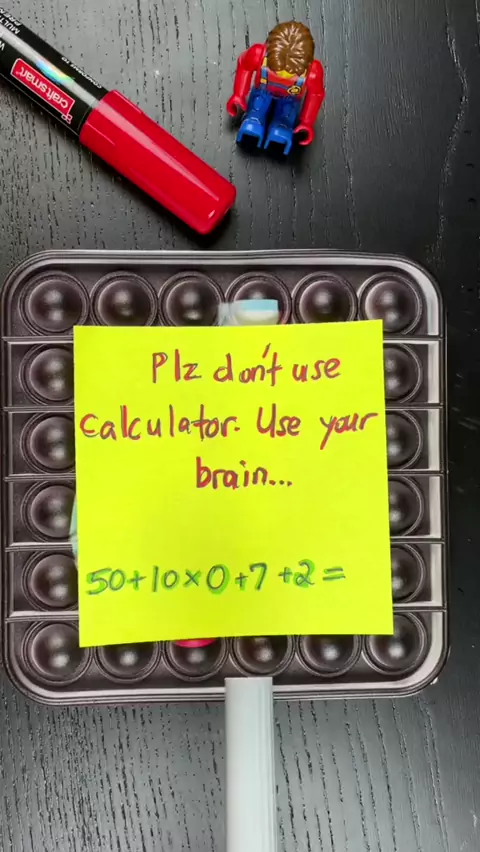 craftsmart
Plz don't use
calculator. Use your
brain...
50+10×0+7+2=